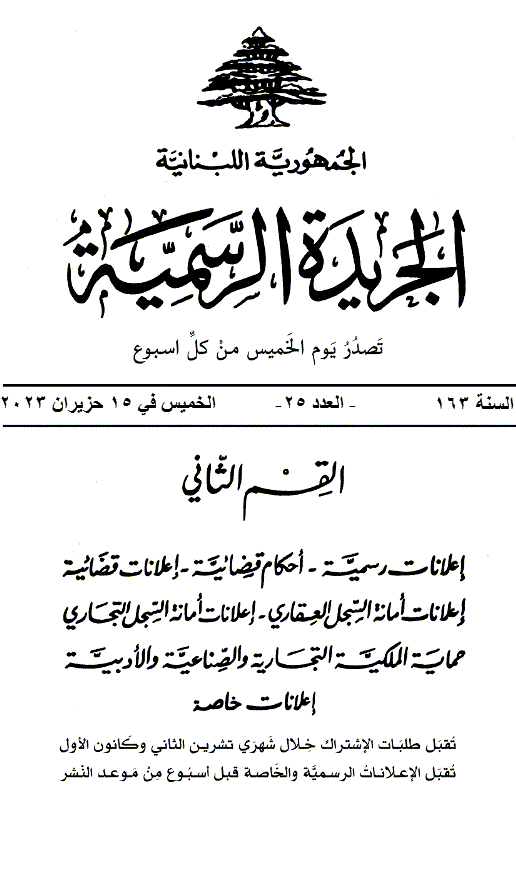 الجمهوريَّة اللبنانيَّة
الجريدة الرسميَّة
تَصدُرُ يَوم الخَميس منْ كلِّ اسبوع
السنة ١٦٣ - العدد ٢٥- الخميس في ١٥ حزيران ٢٠٢٣
القِسْم الثّاني
إعلانات رسميَّة - أحكام قضائيَّة - إعلانات قضائية
إعلانات أمانة السِّجل العِقاري - إعلانات أمانة السِّجل التجاري
حماية الملكيَّة التجارية والصِّناعيَّة والأدبيَّة
إعلانات خاصة
تُقبَل طلبَات الإشتراك خِلال شَهرَي تشرين الثاني وكَانون الأول
تُقبَل الإعلاناتُ الرسميَّة والخَاصة قبل أسبُوع مِنْ مَوعد النَشر